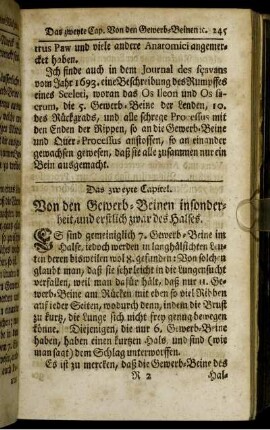 Das zweyte Cap. Von den Gewerb-Beinen ꝛc. 245
trus Paw und viele andere Anatomici angemer-
cket haben.
Ich finde auch in dem Journal des sçavans
vom Jahr 1693. eine Beschreibung des Rumpffes
eines Sceleti, woran das Os Ileon und Os sa-
crum, die 5. Gewerb-Beine der Lenden, 10.
des Rückgrads, und alle schrege Processus mit
den Enden der Rippen, so an die Gewerb-Beine
und Quer-Processus anstossen, so an einander
gewachsen gewesen, daß sie alle zusammen nur ein
Bein ausgemacht.
Das zweyte Capitel.
Von den Gewerb-Beinen insonder-
heit, und erstlich zwar des Halses.
ES sind gemeiniglich 7. Gewerb-Beine im
Halse, jedoch werden in langhälsichten Leu-
ten deren bisweilen wol 8. gefunden: Von solchen
glaubt man, daß sie sehr leicht in die Lungensucht
verfallen, weil man dafür hält, daß nur 11. Ge-
werb-Beine am Rücken mit eben so viel Ribben
auf jeder Seiten, wodurch denn, indem die Brust
zu kurtz, die Lunge sich nicht frey genug bewegen
könne. Diejenigen, die nur 6. Gewerb-Beine
haben, haben einen kurtzen Hals, und sind (wie
man sagt) dem Schlag unterworffen.
Es ist zu mercken, daß die Gewerb-Beine des
R 2 Hal-